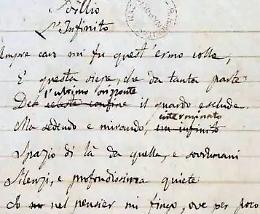 Idillio
L'Infinito
empre caro mi fu quest'ermo colle,
E questa siepe, che da tanta parte
l'ultimo orizzonte
Del celeste confine il guardo esclude.
interminato
Ma sedendo e mirando, un infinito
Spazio di là da quella, e sovrumani
Silenzi, e profondissima quiete
Io nel pensier mi fingo, ove per poco